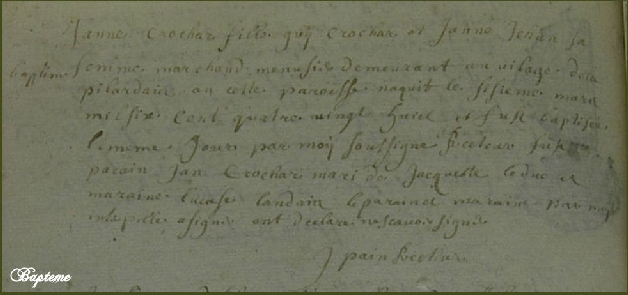 Janne Crochar fille guy Crochar et Janne Jenan sa
baptem femme marchand menusie demeurant au vilage de la
pilardair en celle paroisse naquit le sisieme mara
mil six cent quatre vingt huict et fust baptisee
le meme Jour par moy soussigne Recteur fust
parain Jan Crochar mari de Jacquette leduc et
maraine lucase landair le parain et maraine par moy
interpelle a signe ont declare ne scavoir signe
J pain Recteur
Bapteme